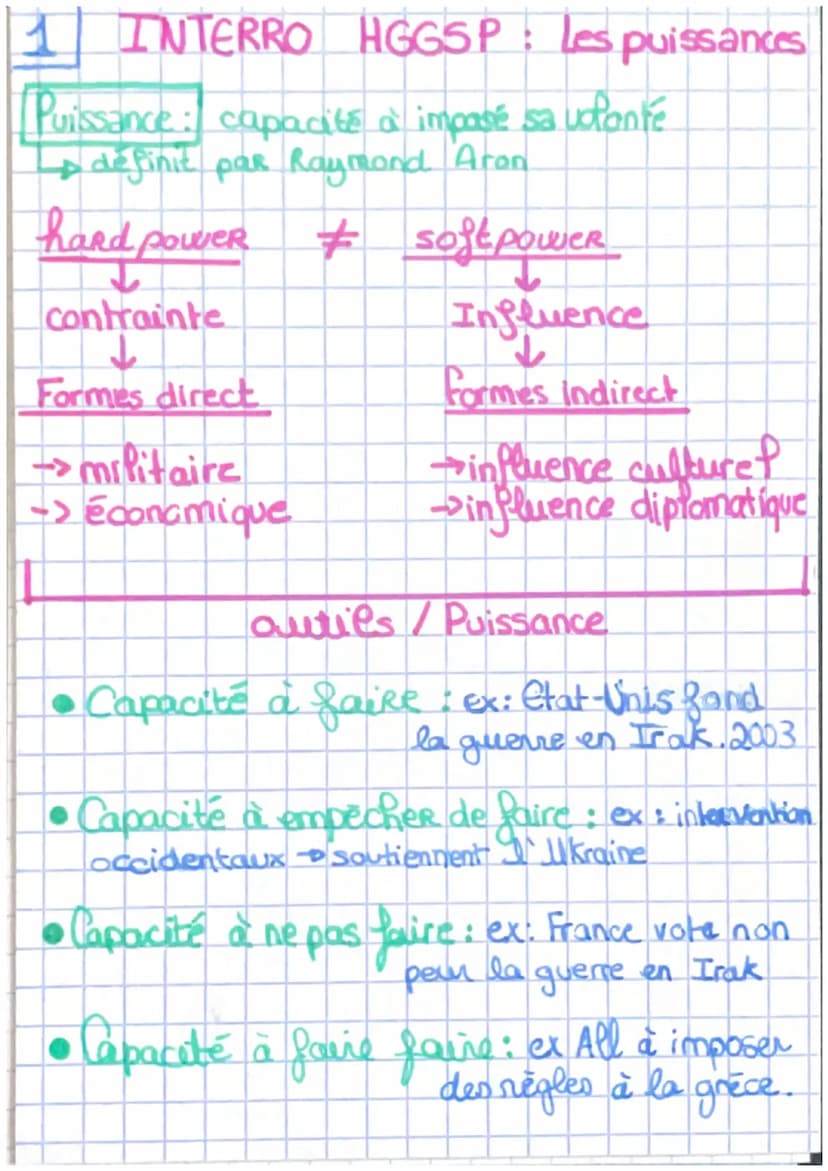 1 INTERRO HGGSP : les puissances
Puissance : capacité à imposé sa volonté
↳ définit par Raymond Aron
hard power ≠ soft power
↓ ↓
contrainte Influence
↓ ↓
Formes direct formes indirect
-> militaire → influence culturel
-> économique -> influence diplomatique
outils / Puissance
• Capacité à faire : ex: Etat-Unis fond
la guerre en Irak. 2003
• Capacité à empêcher de faire : ex : intervention
occidentaux → soutiennent l'Ukraine
• Capacité à ne pas faire : ex: France vote non
pour la guerre en Irak
• Capacité à faire faire : ex All à imposer
des règles à la grèce.